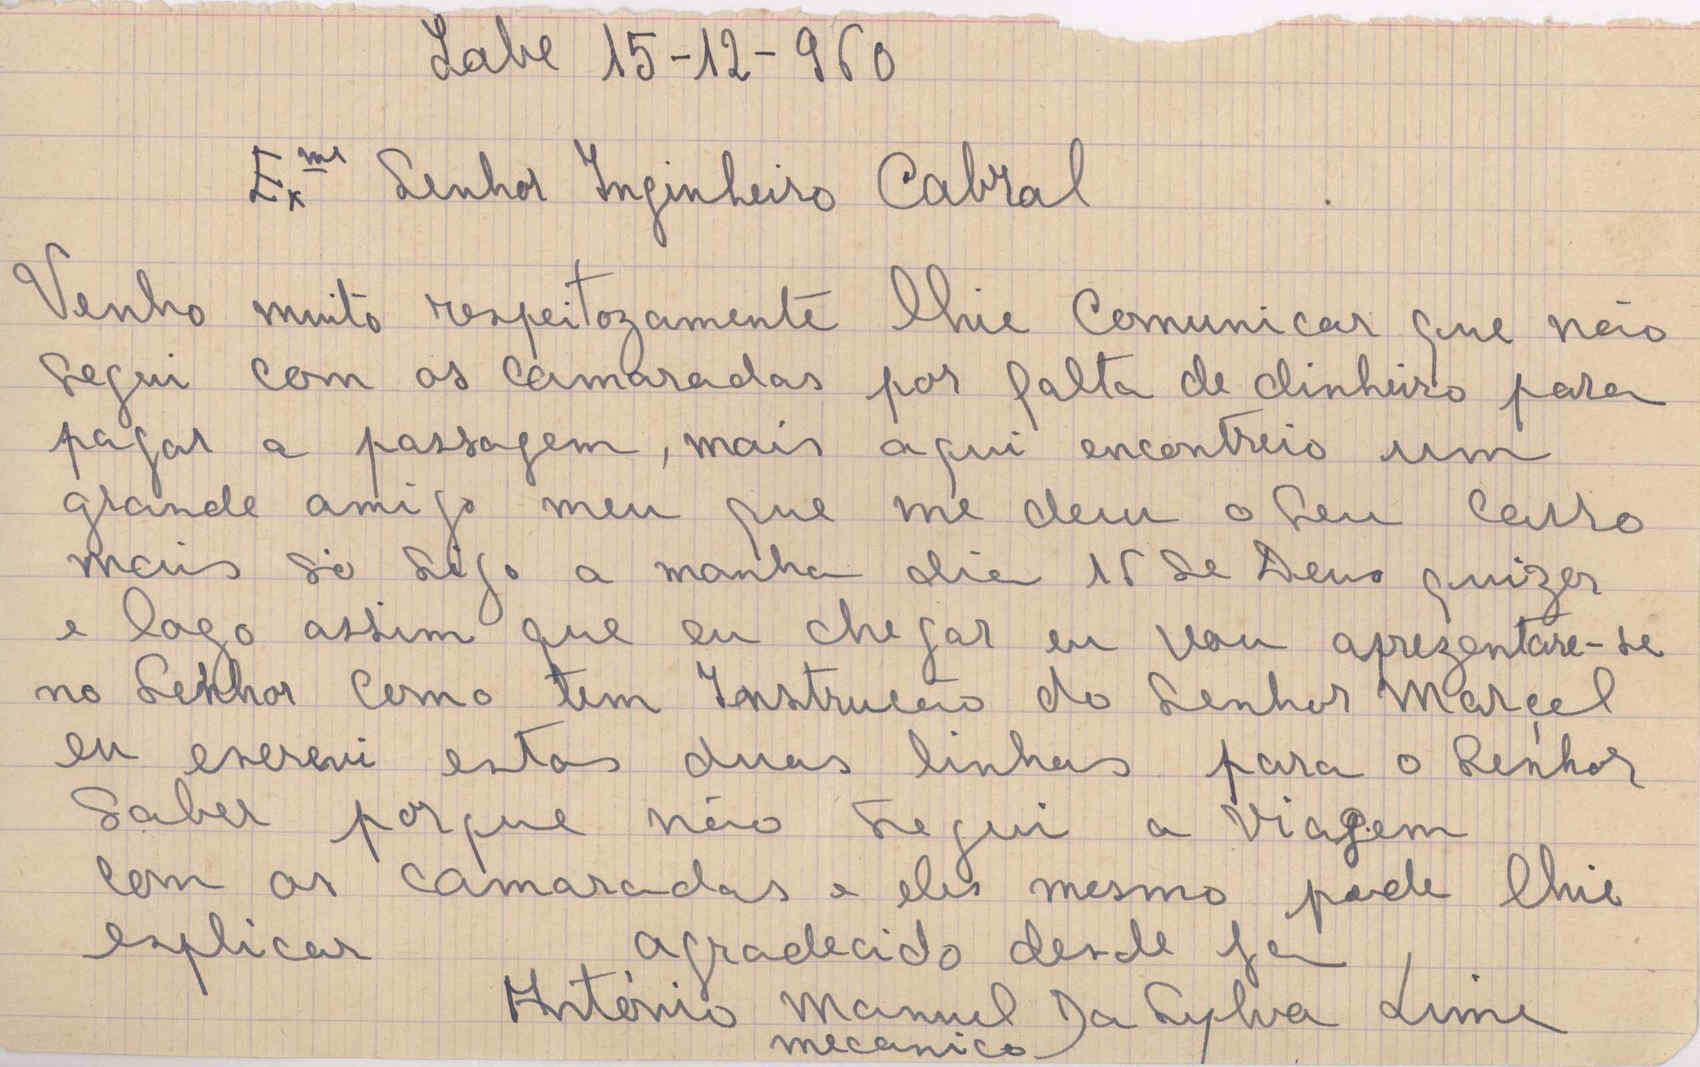 Labe 15-12-960
Exmo Senhor Inginheiro Cabral
Venho muito respeitozamente lhie Comunicar que não
segui com os camaradas por falta de dinheiro para
pagar a passagem, mais aqui encontreio um
grande amigo meu que me deu o seu carro
mais só sigo a manha dia 16 se Deus quizer
e logo assim que eu chegar eu vou aprezentare-se
no Senhor como tem Instrucão do Senhor Marcel
eu escrevi estas duas linhas para o Senhor
Saber porque não segui a viagem
com os camaradas e eles mesmo pode lhie
esplicar agradecido desde ja
António Manuel Da Sylva Lima
mecanico